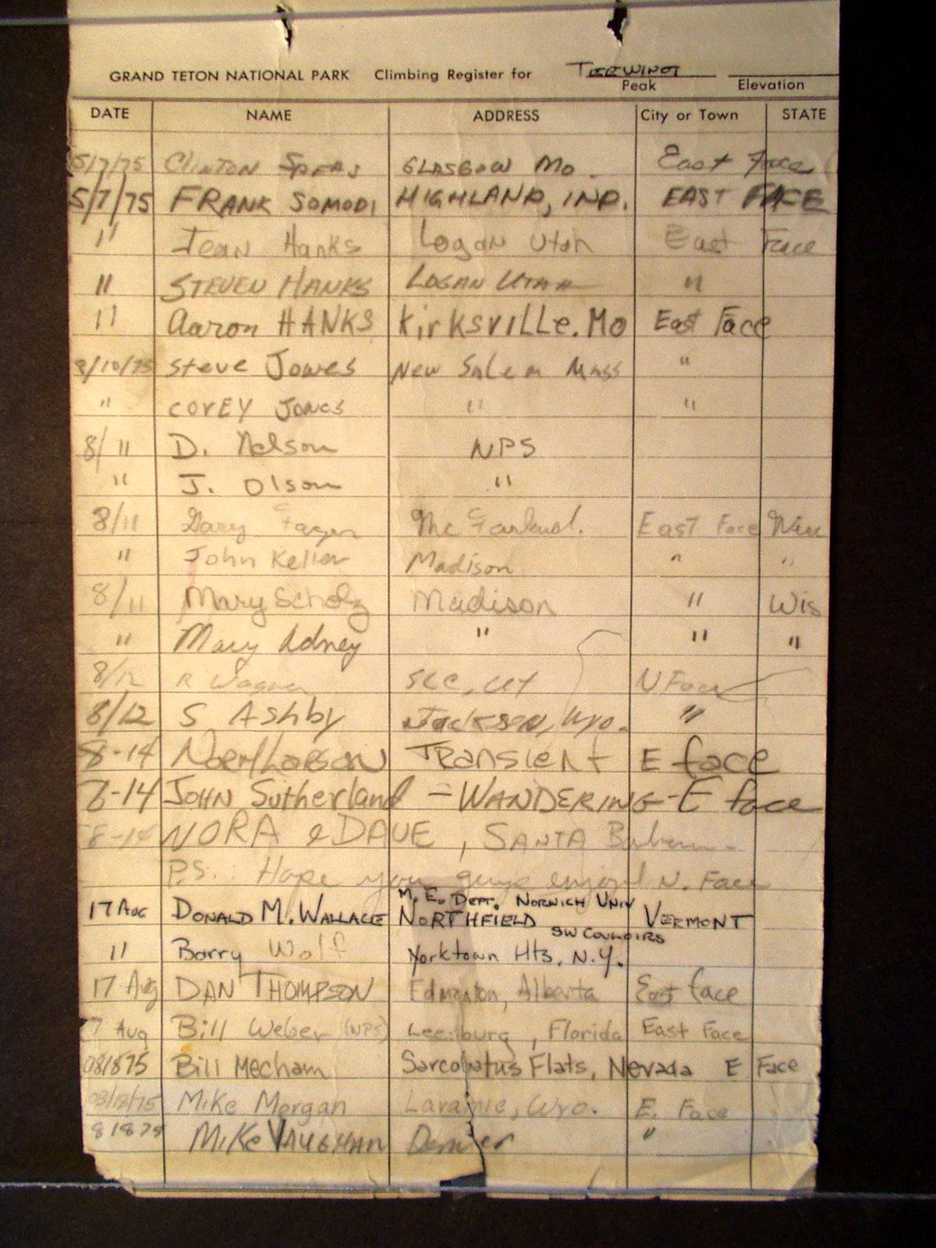 GRAND TETON NATIONAL PARK Climbing Register for TEEWINOT
Peak Elevation
DATE NAME ADDRESS City or Town STATE
5/7/75 CLINTON SPEAS GLASGOW MO. East Face
5/7/75 FRANK SOMODI HIGHLAND, IND. EAST FACE
" Jean Hanks Logan Utah East Face
" STEVEN HANKS LOGAN UTAH "
" Aaron HANKS KirksviLLe. Mo East Face
8/10/75 Steve Jones New Salem Mass "
" COREY Jones " "
8/11 D. Nelson NPS
" J. Olson "
8/11 Gary Fager Mc Farland. East Face
" John Keller Madison " "
8/11 Mary Scholz Madison " Wis
" Mary Adney " " "
8/12 R Wagner SLC, UT N Face
8/12 S Ashby Jackson, Wyo. "
8-14 Norm Larson TRansient E face
8-14 JOHN Sutherland - WANDERING - E face
8-14 NORA & DAVE, SANTA Barbara.
P.S. : Hope you guys enjoyed N. Face
M. E. DEPT. NORWICH UNIV
17 AUG DONALD M. WALLACE NORTHFIELD VERMONT
SW COULOIRS
" Barry Wolf Yorktown Hts, N.Y.
17 Aug DAN THOMPSON Edmonton, Alberta East face
7 Aug Bill Weber (NPS) Leesburg, Florida East Face
081875 Bill Mecham Sarcobatus Flats, Nevada E Face
08/18/75 Mike Morgan Laramie, Wyo. E. Face
81875 MiKe VAUGHAN Denver "